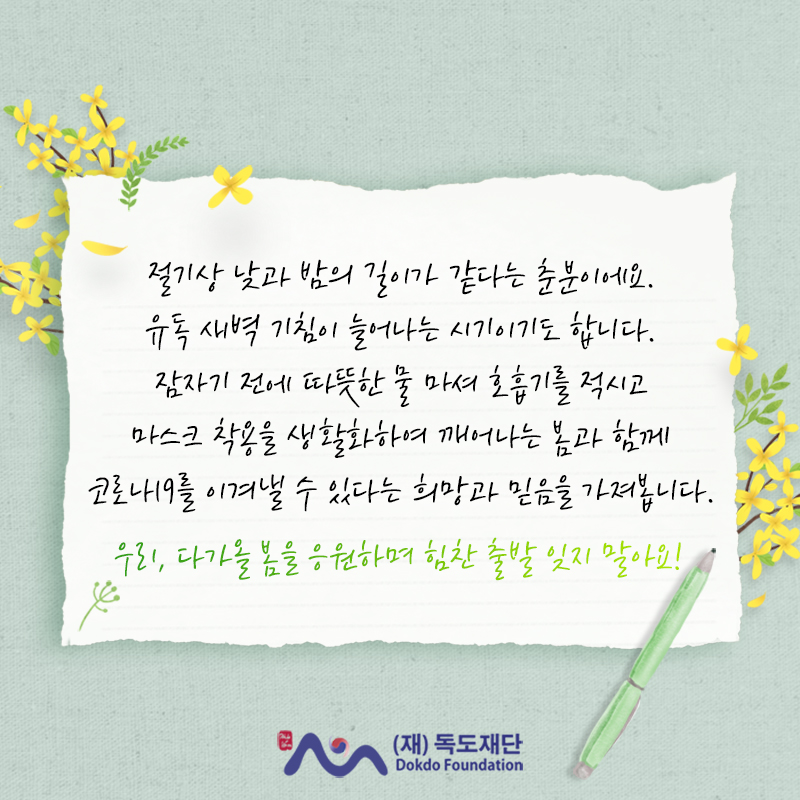 절기상 낮과 밤의 길이가 같다는 춘분이에요.
유독 새벽 기침이 늘어나는 시기이기도 합니다.
잠자기 전에 따뜻한 물 마셔 호흡기를 적시고
마스크 착용을 생활화하여 깨어나는 봄과 함께
코로나19를 이겨낼 수 있다는 희망과 믿음을 가져봅니다.
우리, 다가올 봄을 응원하며 힘찬 출발 잊지 말아요!
(재) 독도재단
Dokdo Foundation